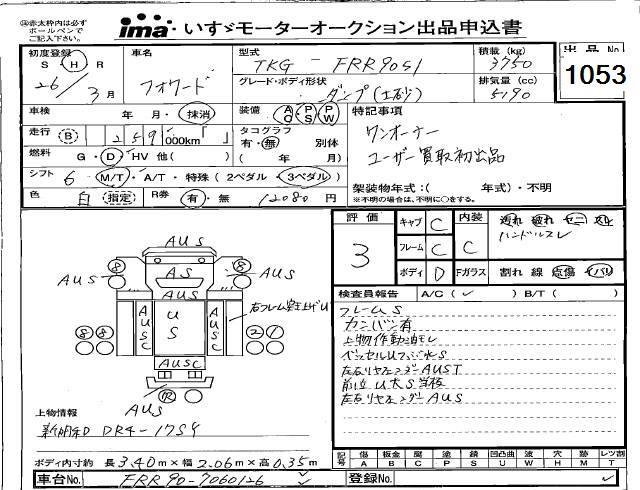 ※赤太枠内は必ず
ボールペンで
ご記入下さい。
ima いすゞモーターオークション出品申込書
初度登録
S H R
26 / 3月
車名
フォワード
型式
TKG - FRR90S1
積載 (kg)
3750
グレード・ボディ形状
ダンプ(土砂)
排気量 (cc)
5190
出品No
1053
車検
年 月・抹消
装備 AC PS PW
特記事項
走行 B 259 000km「 」
タコグラフ
有・無 別体
( 年 月)
ワンオーナー
ユーザー買取初出品
燃料 G・D・HV 他( )
シフト 6 M/T・A/T・特殊(2ペダル・3ペダル)
架装物年式:( 年式)・不明
※不明の場合は、不明に○をする。
色 白 指定
R券 有・無 12080 円
評価
3
キャブ C
フレーム C
ボディ D
内装 C
Fガラス
汚れ 破れ ヤニ スレ
ハンドルスレ
割れ 線 点傷 トバリ
検査員報告 A/C(✓) B/T( )
フレームS
カンバン有
上物作動油モレ
左右リヤフェンダーAUST
左右リヤフェンダーAUS
AUS
AUS
AUS
AS
8
8
AUSC
US
AUSC
8 8
2 1
AUSC
R
AUS
上物情報
新明和 DR4-17SY
ボディ内寸約 長 3.40m×幅 2.06m×高 0.35m
記号
傷 A
板金 B
腐 C
塗 P
錆 S
凹凸曲 U
波 W
穴 H
跡 M
レツ割 T
車台No. FRR90-7060126
登録No.